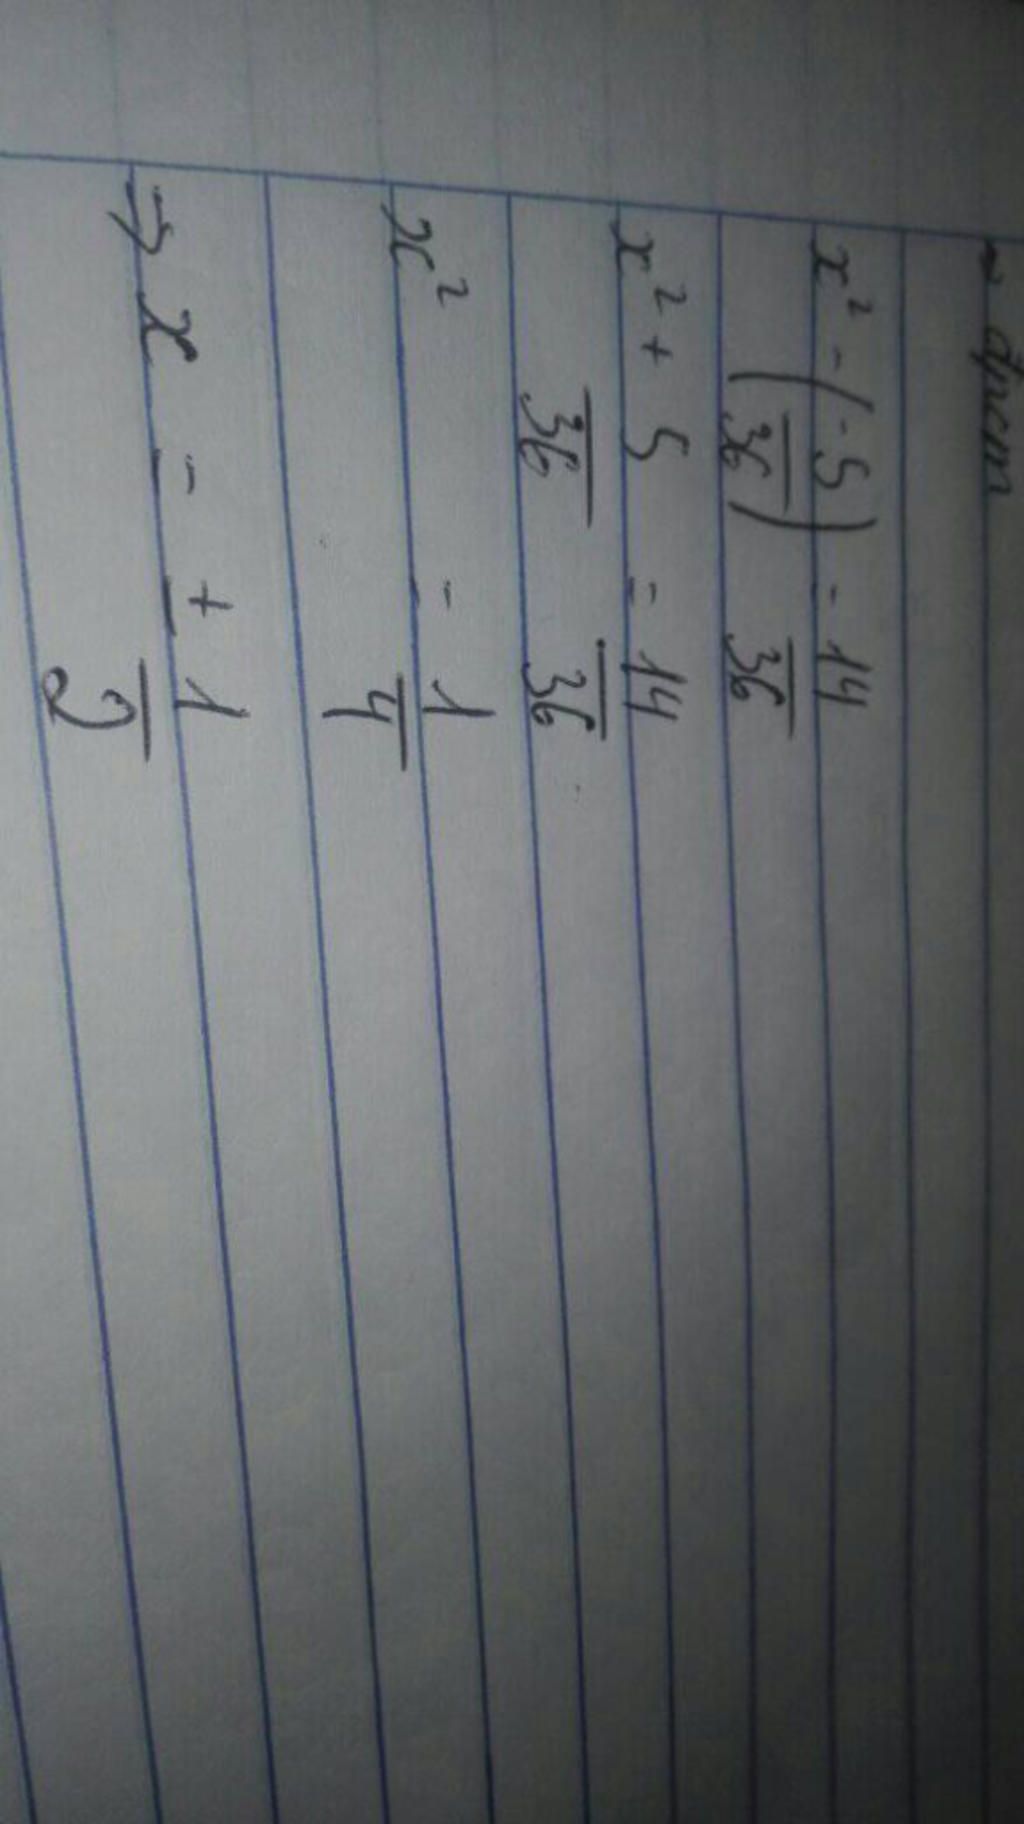 x² - (-5/36) = 14/36
x² + 5/36 = 14/36
x² = 1/4
⇒ x = ± 1/2